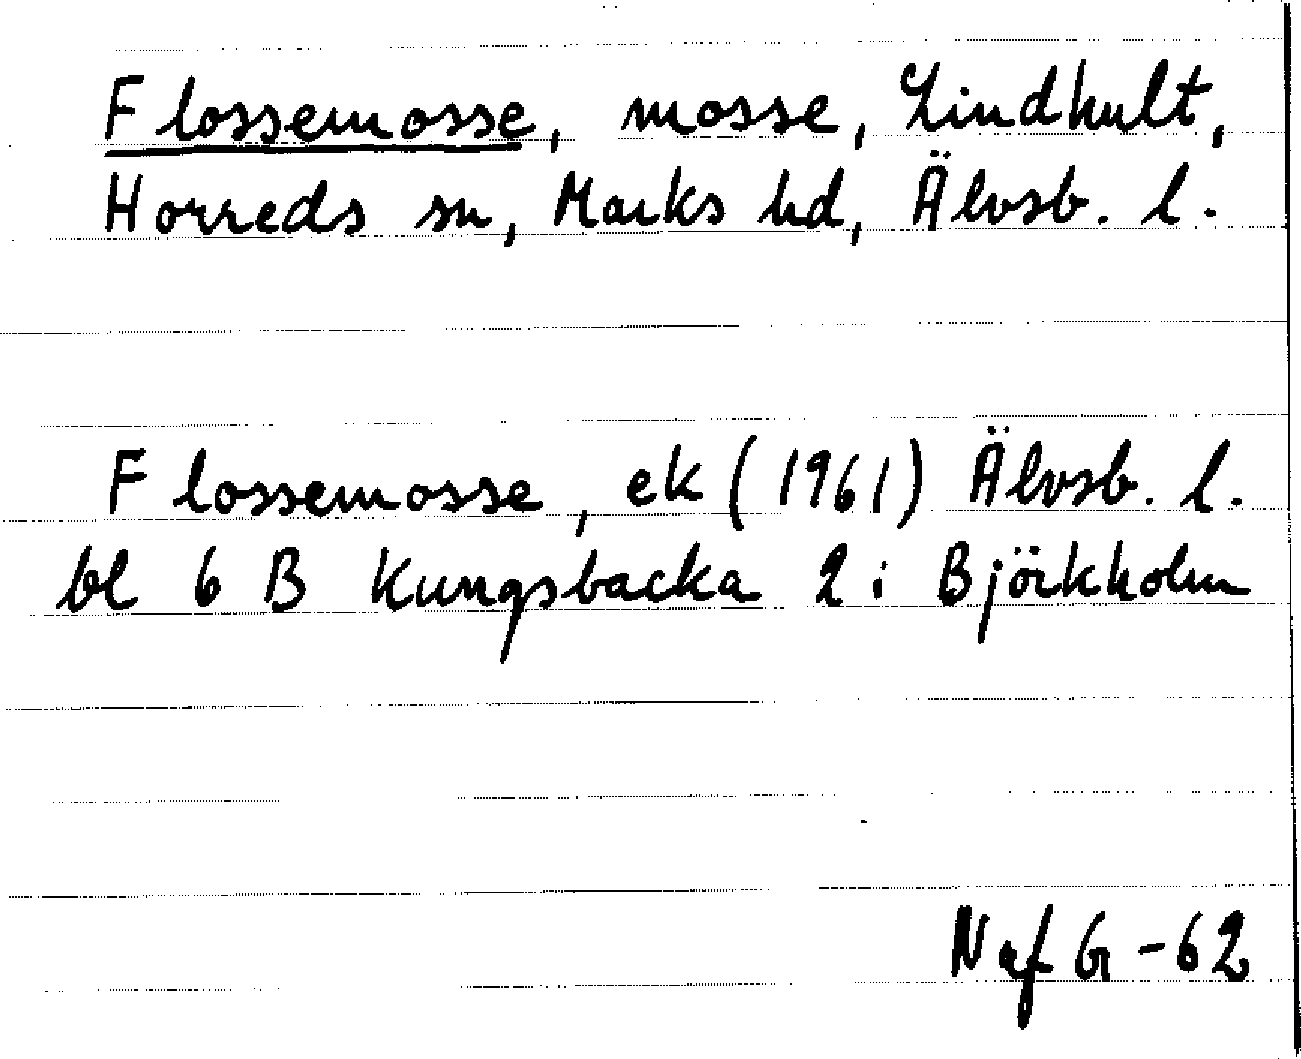 Flossemosse, mosse, Lindhult,
Horreds sn, Marks hd, Älvsb. l.
Flossemosse, ek (1961) Älvsb. l.
bl 6 B Kungsbacka 2 i Björkholm
Naf G -62